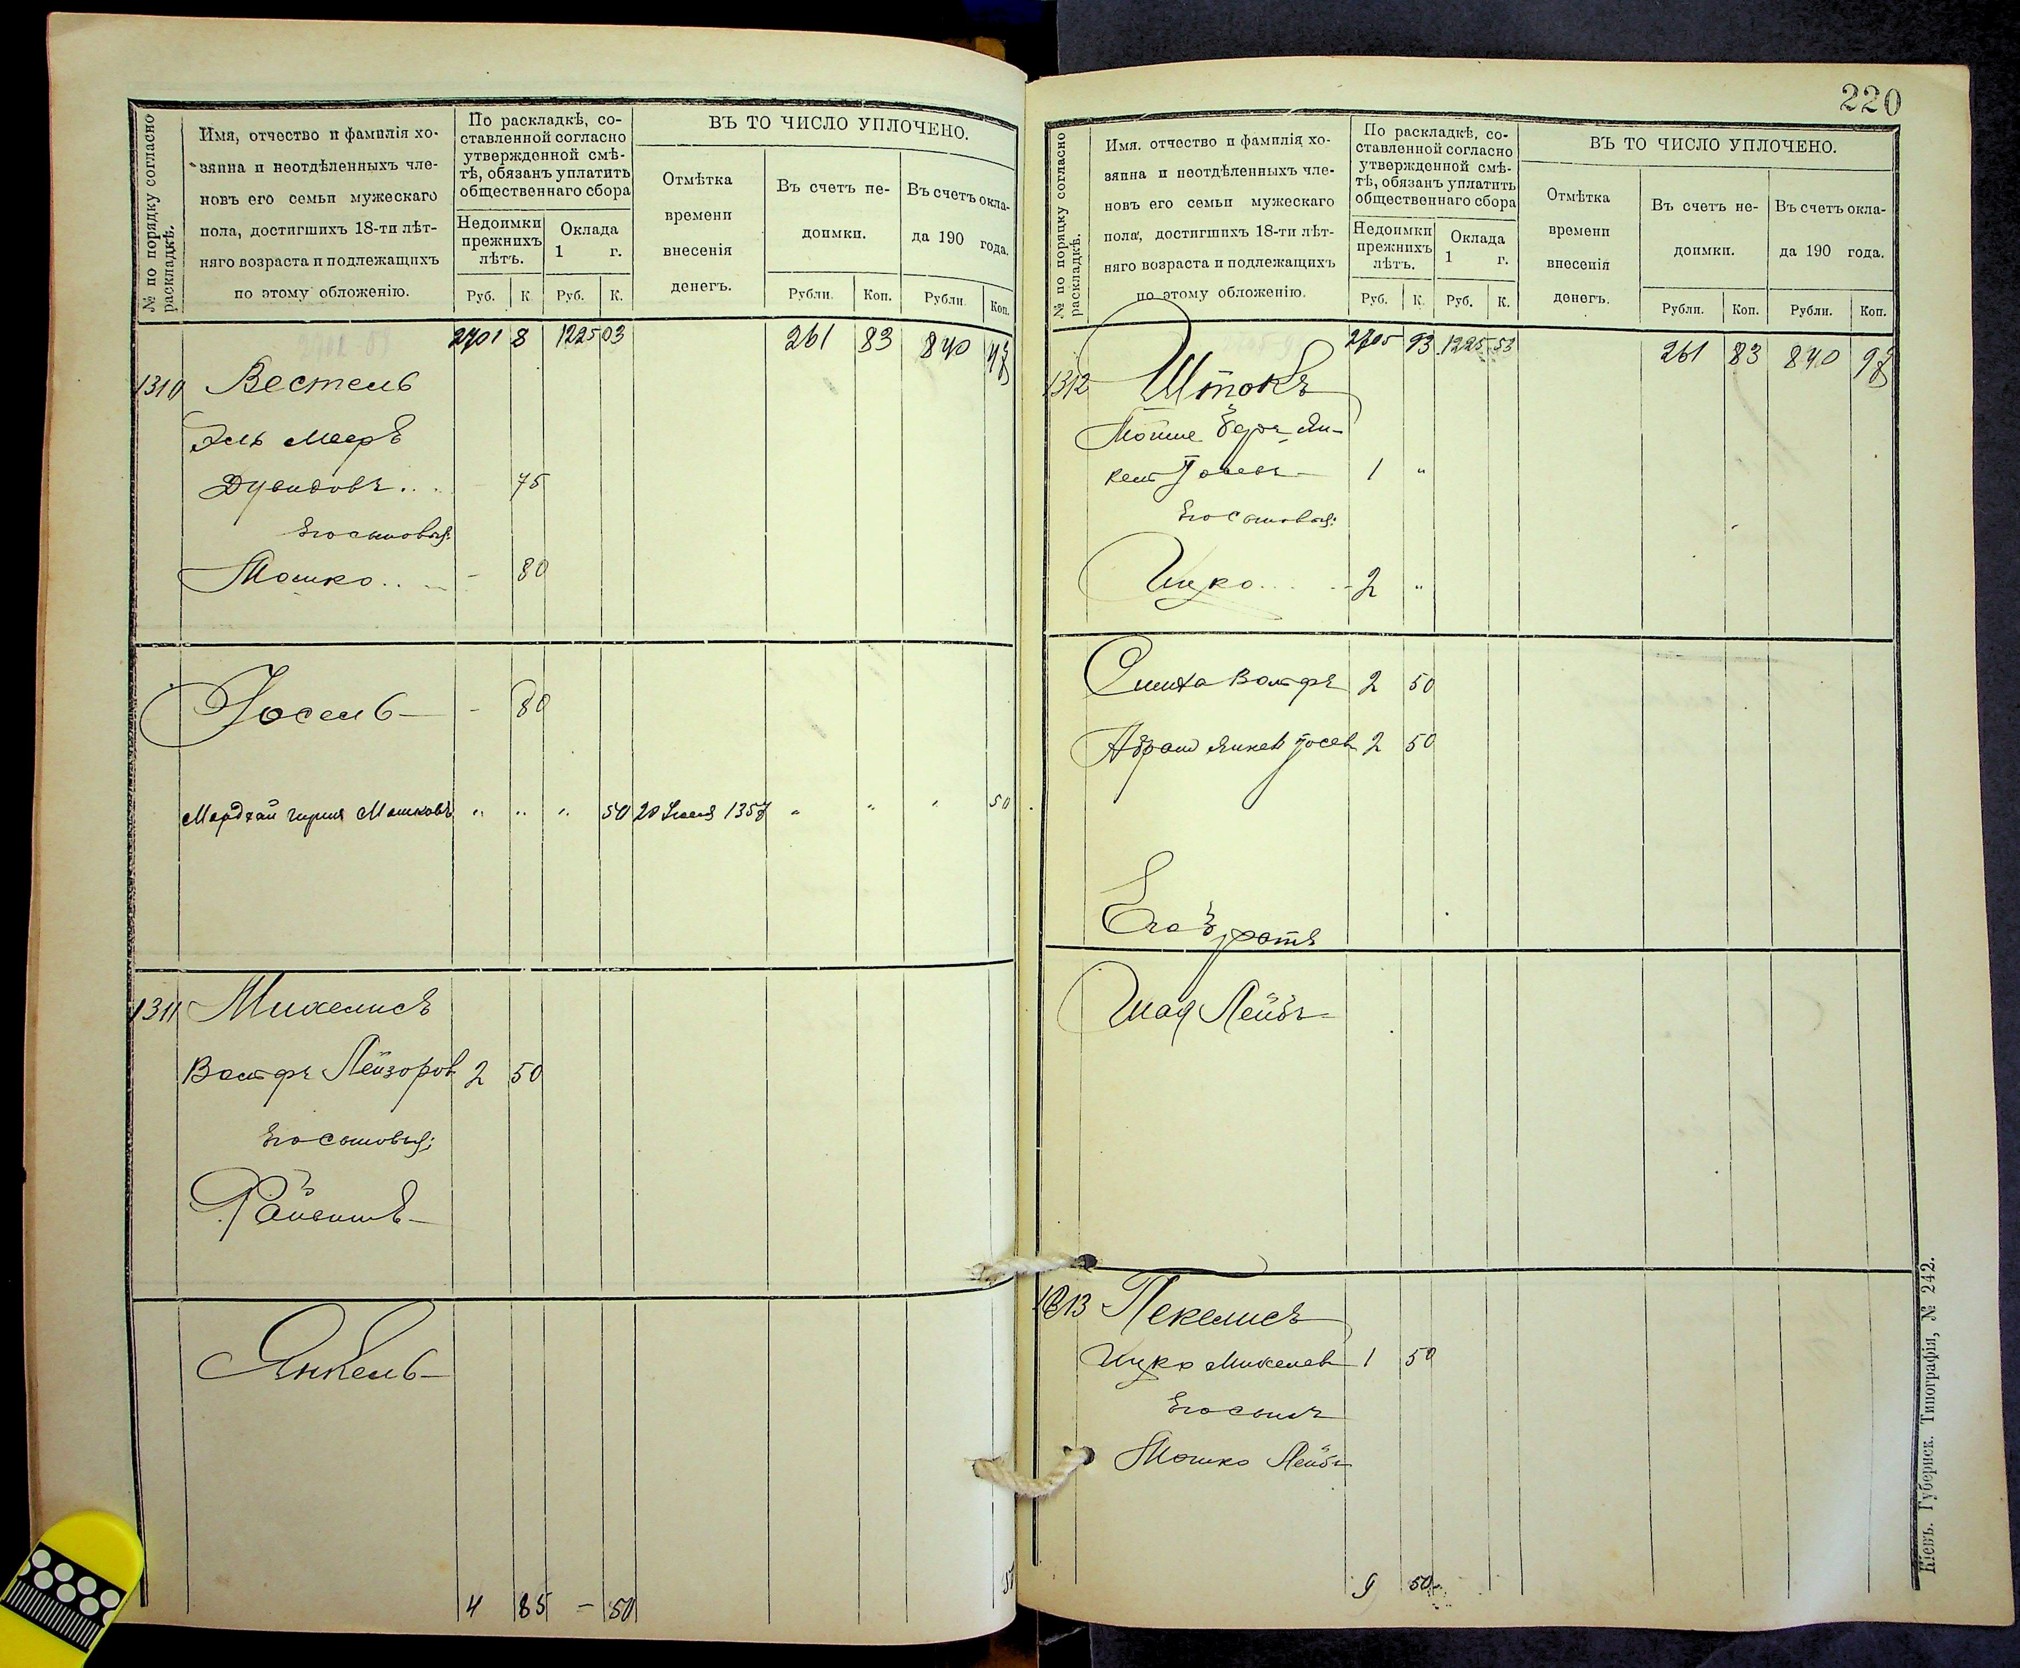 № по порядку согласно раскладкѣ.
Имя, отчество и фамилія хо-
зяина и неотдѣленныхъ чле-
новъ его семьи мужескаго
пола, достигшихъ 18-ти лѣт-
няго возраста и подлежащихъ
по этому обложенію.
По раскладкѣ, со-
ставленной согласно
утвержденной смѣ-
тѣ, обязанъ уплатить
общественнаго сбора
Недоимки
прежнихъ
лѣтъ.
Оклада
1 г.
Руб. К. Руб. К.
ВЪ ТО ЧИСЛО УПЛОЧЕНО.
Отмѣтка
времени
внесенія
денегъ.
Въ счетъ не-
доимки.
Въ счетъ окла-
да 190 года.
Рубли. Коп. Рубли. Коп.
2701 8 1225 03 261 83 840
1310 Вестель
Эль Мееръ
Дувидовъ . . 75
Его сыновья:
Мошко . . - 80
Іосель - 80
Мордхай Гершл Мошковъ " " " 50 20 " " " 50
1311 Михелисъ
Вольфъ Лейзоров 2 50
Его сыновья:
Файвишъ
Янкель
4 85 - 50
220
№ по порядку согласно раскладкѣ.
Имя, отчество и фамилія хо-
зяина и неотдѣленныхъ чле-
новъ его семьи мужескаго
пола, достигшихъ 18-ти лѣт-
няго возраста и подлежащихъ
по этому обложенію.
По раскладкѣ, со-
ставленной согласно
утвержденной смѣ-
тѣ, обязанъ уплатить
общественнаго сбора
Недоимки
прежнихъ
лѣтъ.
Оклада
1 г.
Руб. К. Руб. К.
ВЪ ТО ЧИСЛО УПЛОЧЕНО.
Отмѣтка
времени
внесенія
денегъ.
Въ счетъ не-
доимки.
Въ счетъ окла-
да 190 года.
Рубли. Коп. Рубли. Коп.
2705 93 1225 53 261 83 840 98
1312 Штокъ
Мошке Беръ Ян-
кел Іосевъ 1 "
Его сыновья:
Ицко . . . 2 "
Симха Вольфъ 2 50
Абрам Янкел Іосев 2 50
Его братъ
Лейбъ
1313 Пекелисъ
Ицко Михелев 1 50
Его сынъ
Мошко Лейбъ
9 50
Кіевъ. Губернск. Типографія, № 242.